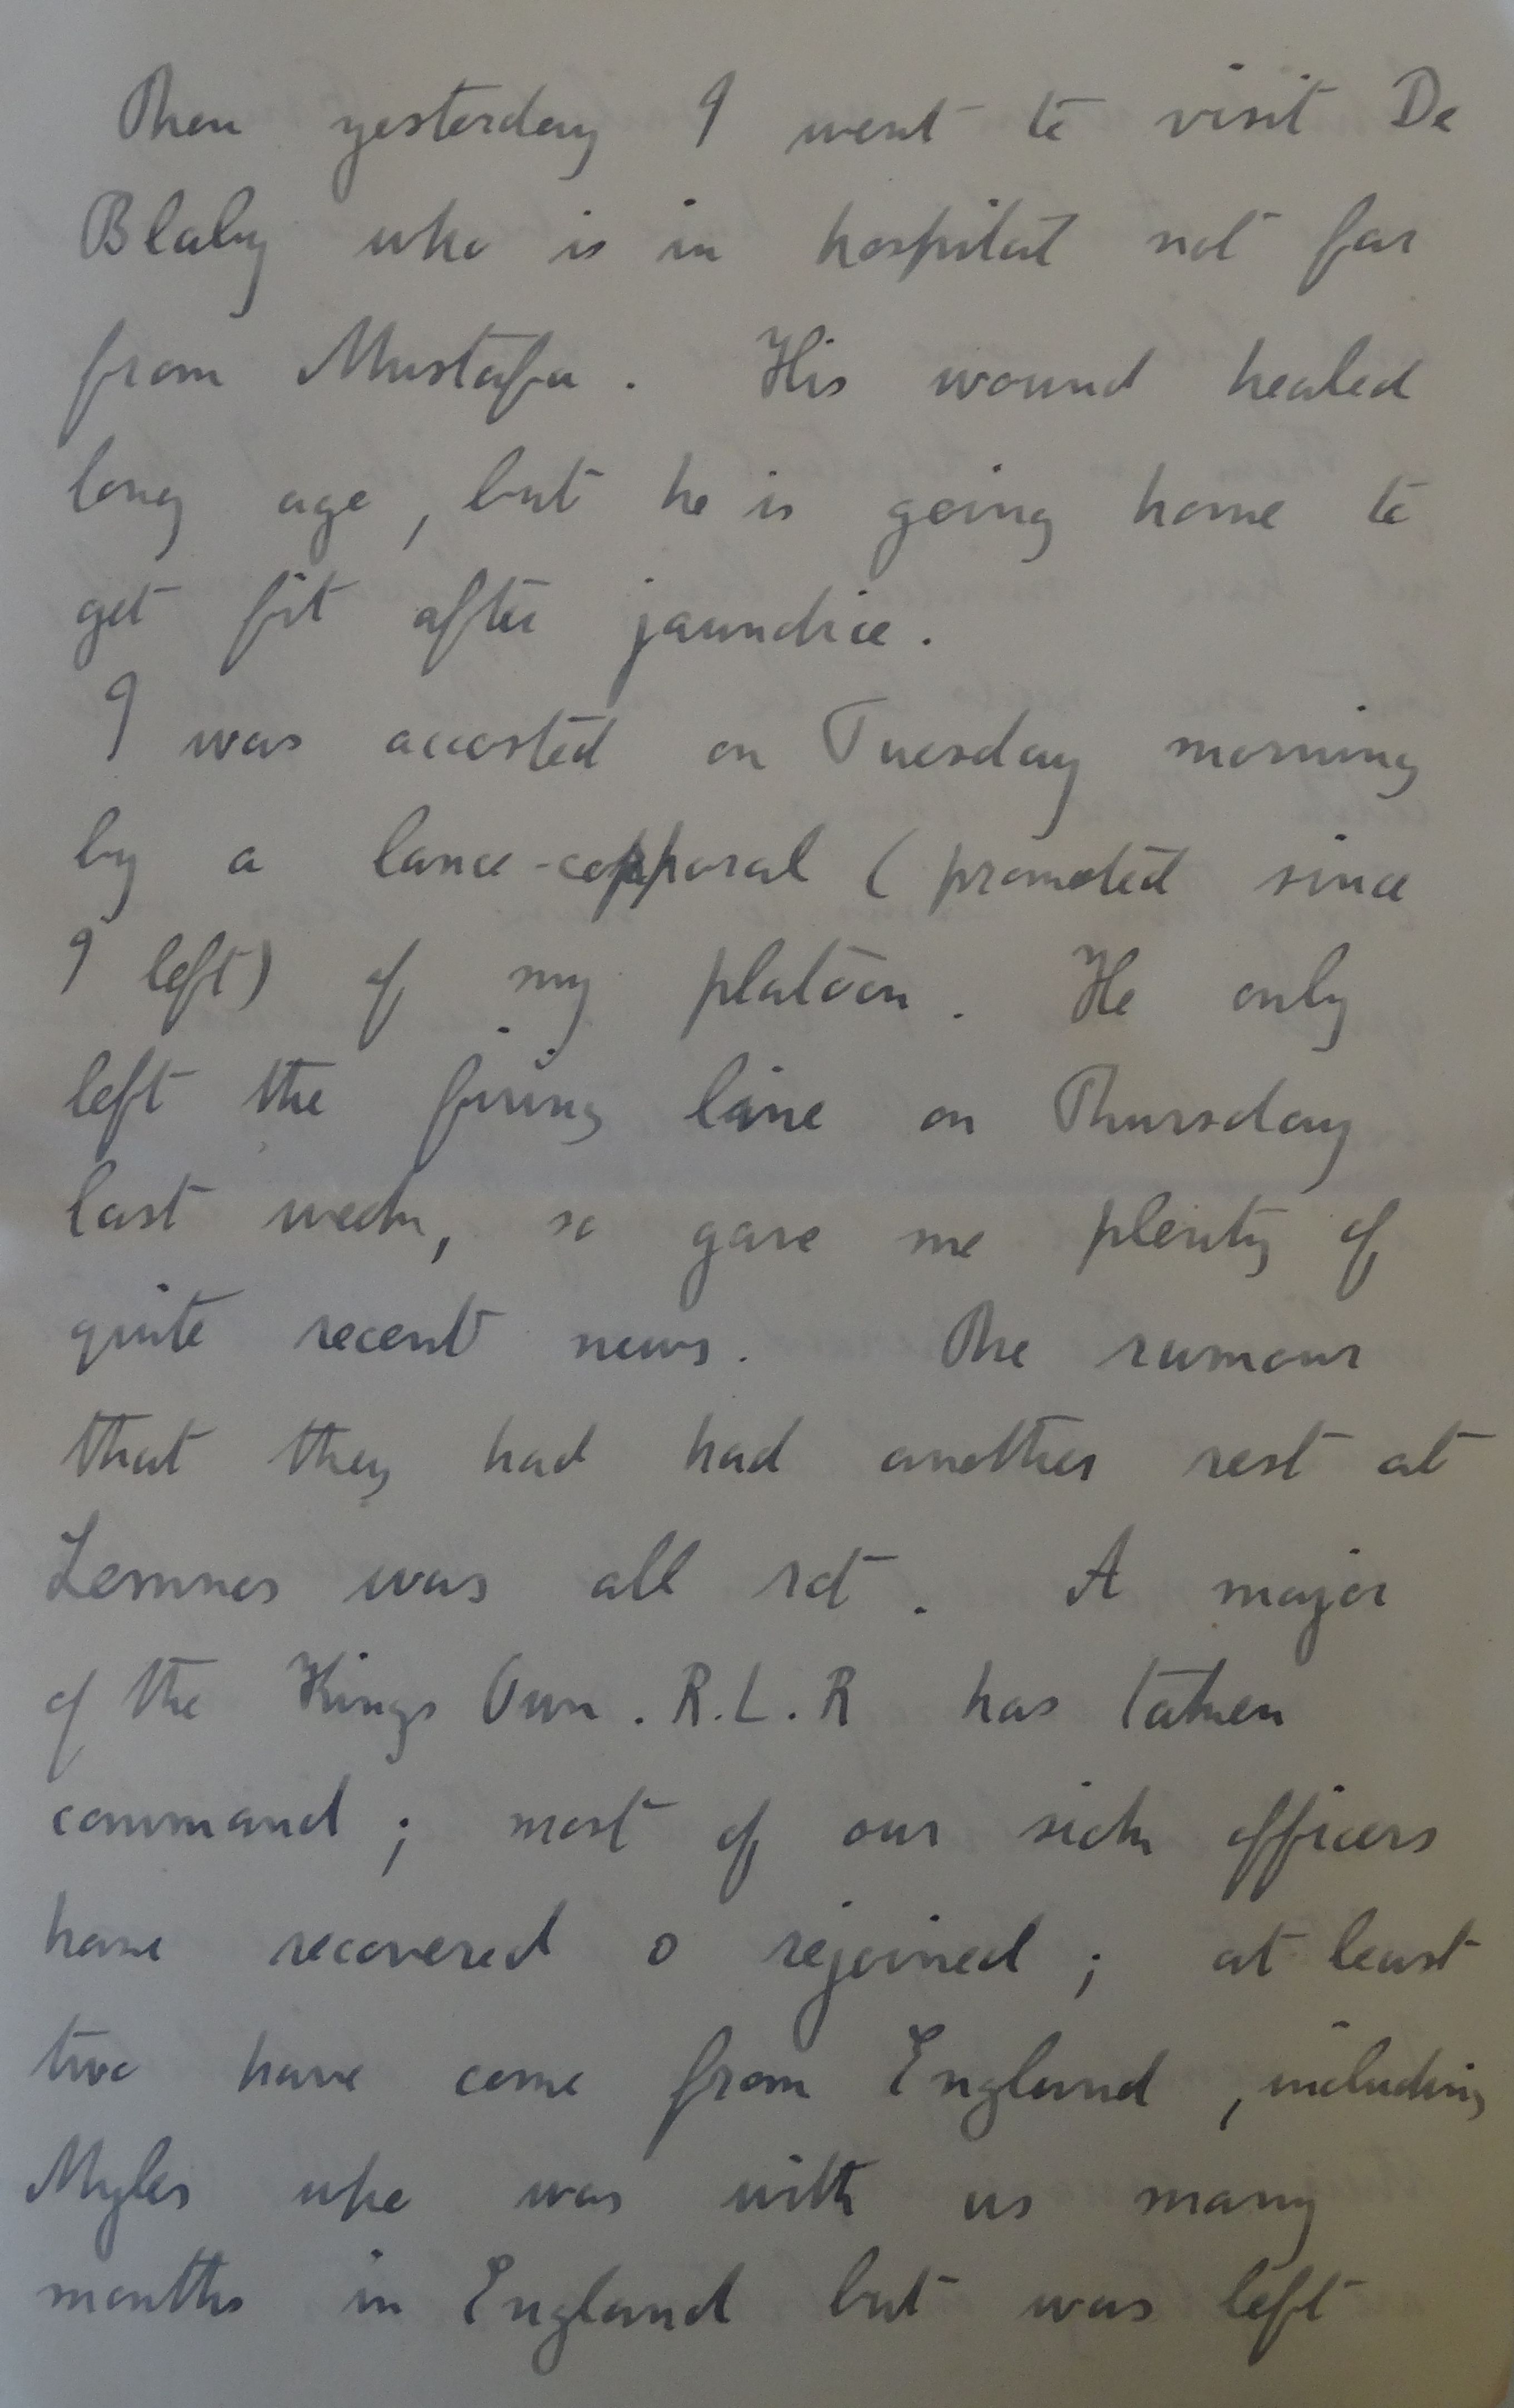 Then yesterday I went to visit De
Blaby who is in hospital not far
from Mustafa. His wound healed
long ago, but he is going home to
get fit after jaundice.
I was accosted on Tuesday morning
by a lance-corporal (promoted since
I left) of my platoon. He only
left the firing line on Thursday
last week, so gave me plenty of
quite recent news. The rumour
that they had had another rest at
Lemnos was all rot. A major
of the Kings Own. R.L.R has taken
command; most of our sick officers
have recovered & rejoined; at least
two have come from England, including
Myles who was with us many
months in England but was left